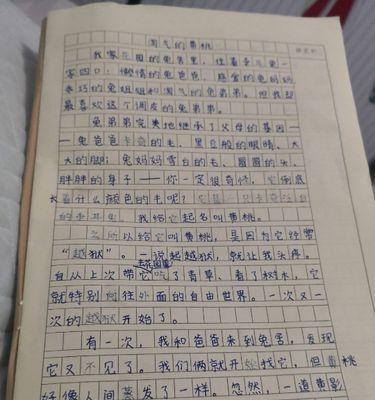 淘气的黄桃
我家花园的兔窝里，住着争气兔一
家四口：懒惰的兔爸爸，慈爱的兔妈妈
乖巧的兔姐姐和淘气的兔弟弟。但我却
最喜欢这个调皮的兔弟弟。
兔弟弟完美地继承了父母的基因—
—兔爸爸卡奇的毛、黑豆般的眼睛、大
大的脚；兔妈妈雪白的毛、圆圆的头、
胖胖的身子——你一定很奇怪，它倒底
长着什么颜色的毛呢？它是一只卡奇
我给它起名叫黄桃。
之所以给它叫黄桃，是因为它经常
“越狱”。一说起越狱，就让我头疼。
自从上次带它去花园里吃了青草、看了树木，它
就特别向往外面的自由世界。一次又一
次的越狱开始了。
有一次，我和爸爸来到兔窝，发现
它又不见了。我们俩就开始找它，但黄桃
好像人间蒸发了一样。忽然，一道黄影